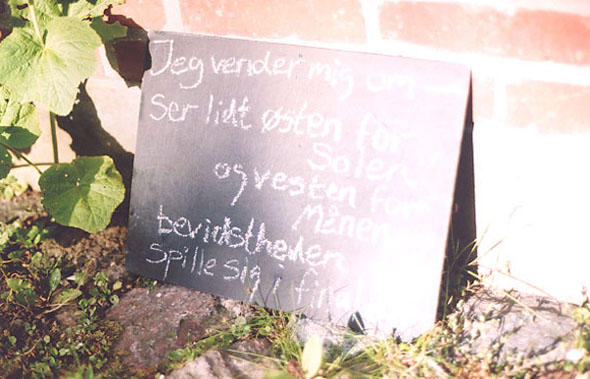 Jeg vender mig om –
Ser lidt østen for
Solen
og vesten for
Månen
bevidstheden
spille sig i